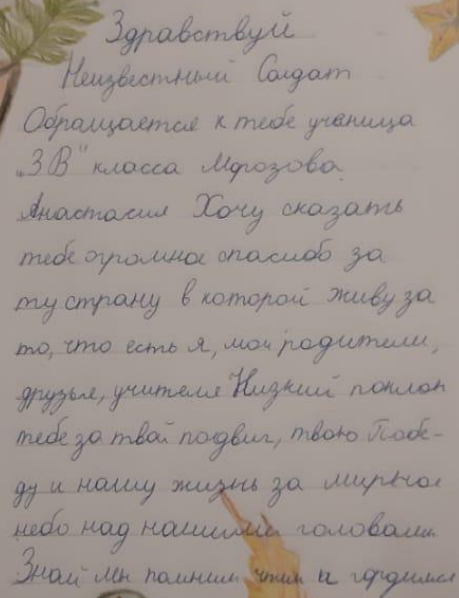 Здравствуй
Неизвестный Солдат
Обращается к тебе ученица
„3 В" класса Морозова
Анастасия Хочу сказать
тебе огромное спасибо за
ту страну в которой живу за
то, что есть я, мои родители,
друзья, учителя Низкий поклон
тебе за твой подвиг, твою Побе-
ду и нашу жизнь за мирное
небо над нашими головами
Знай мы помним чтим и гордимся